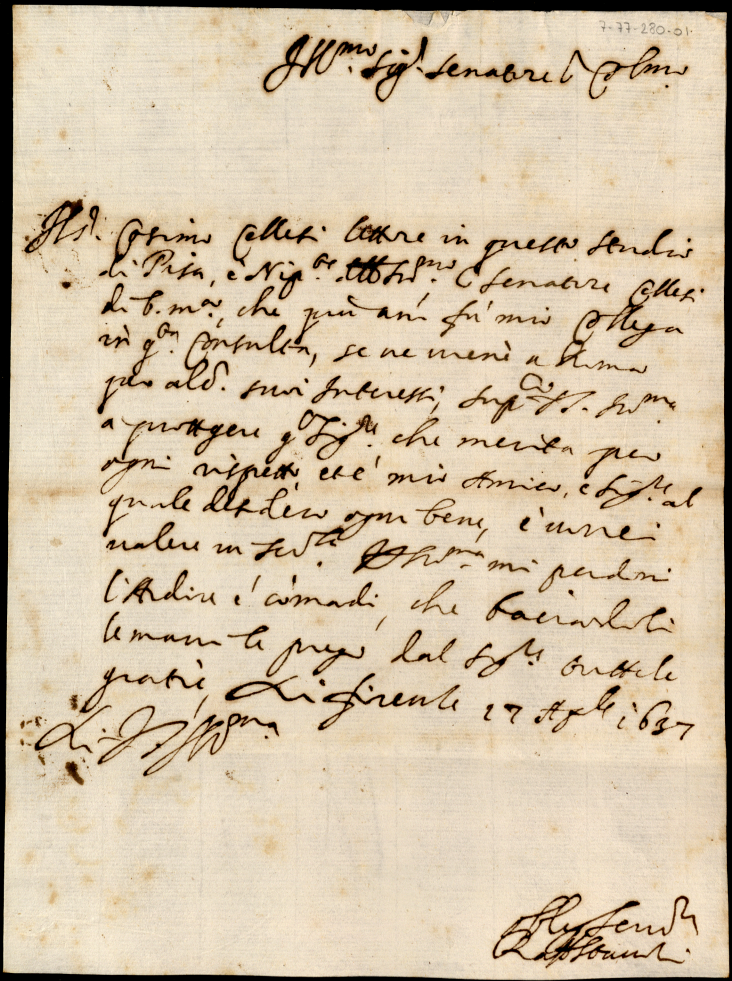 7-77-280-01
Ill.mo Sig.r Senatore e Col.mo
Il S.r Cosimo Cellesi lettore in questo studio
di Pisa, è Nip.te del S.re Senatore Cellesi
di b. ma, che più anni fù mio Collega
in q.ta Consulta, se ne viene a Roma
per alc.i suoi Interessi, sup.co V.S. Ill.ma
a proteggere q.o Sig.re che merita per
ogni rispetto, et è mio Amico, e Sig.re al
quale desidero ogni bene, è vorrei
valere in ser.lo V.S. Ill.ma mi perdoni
l'Ardire é comadi, che baciandoli
le mani le prego dal Sig.re tutte le
gratie, Di firenze 27 Aple 1637
Di V.S. Ill.ma